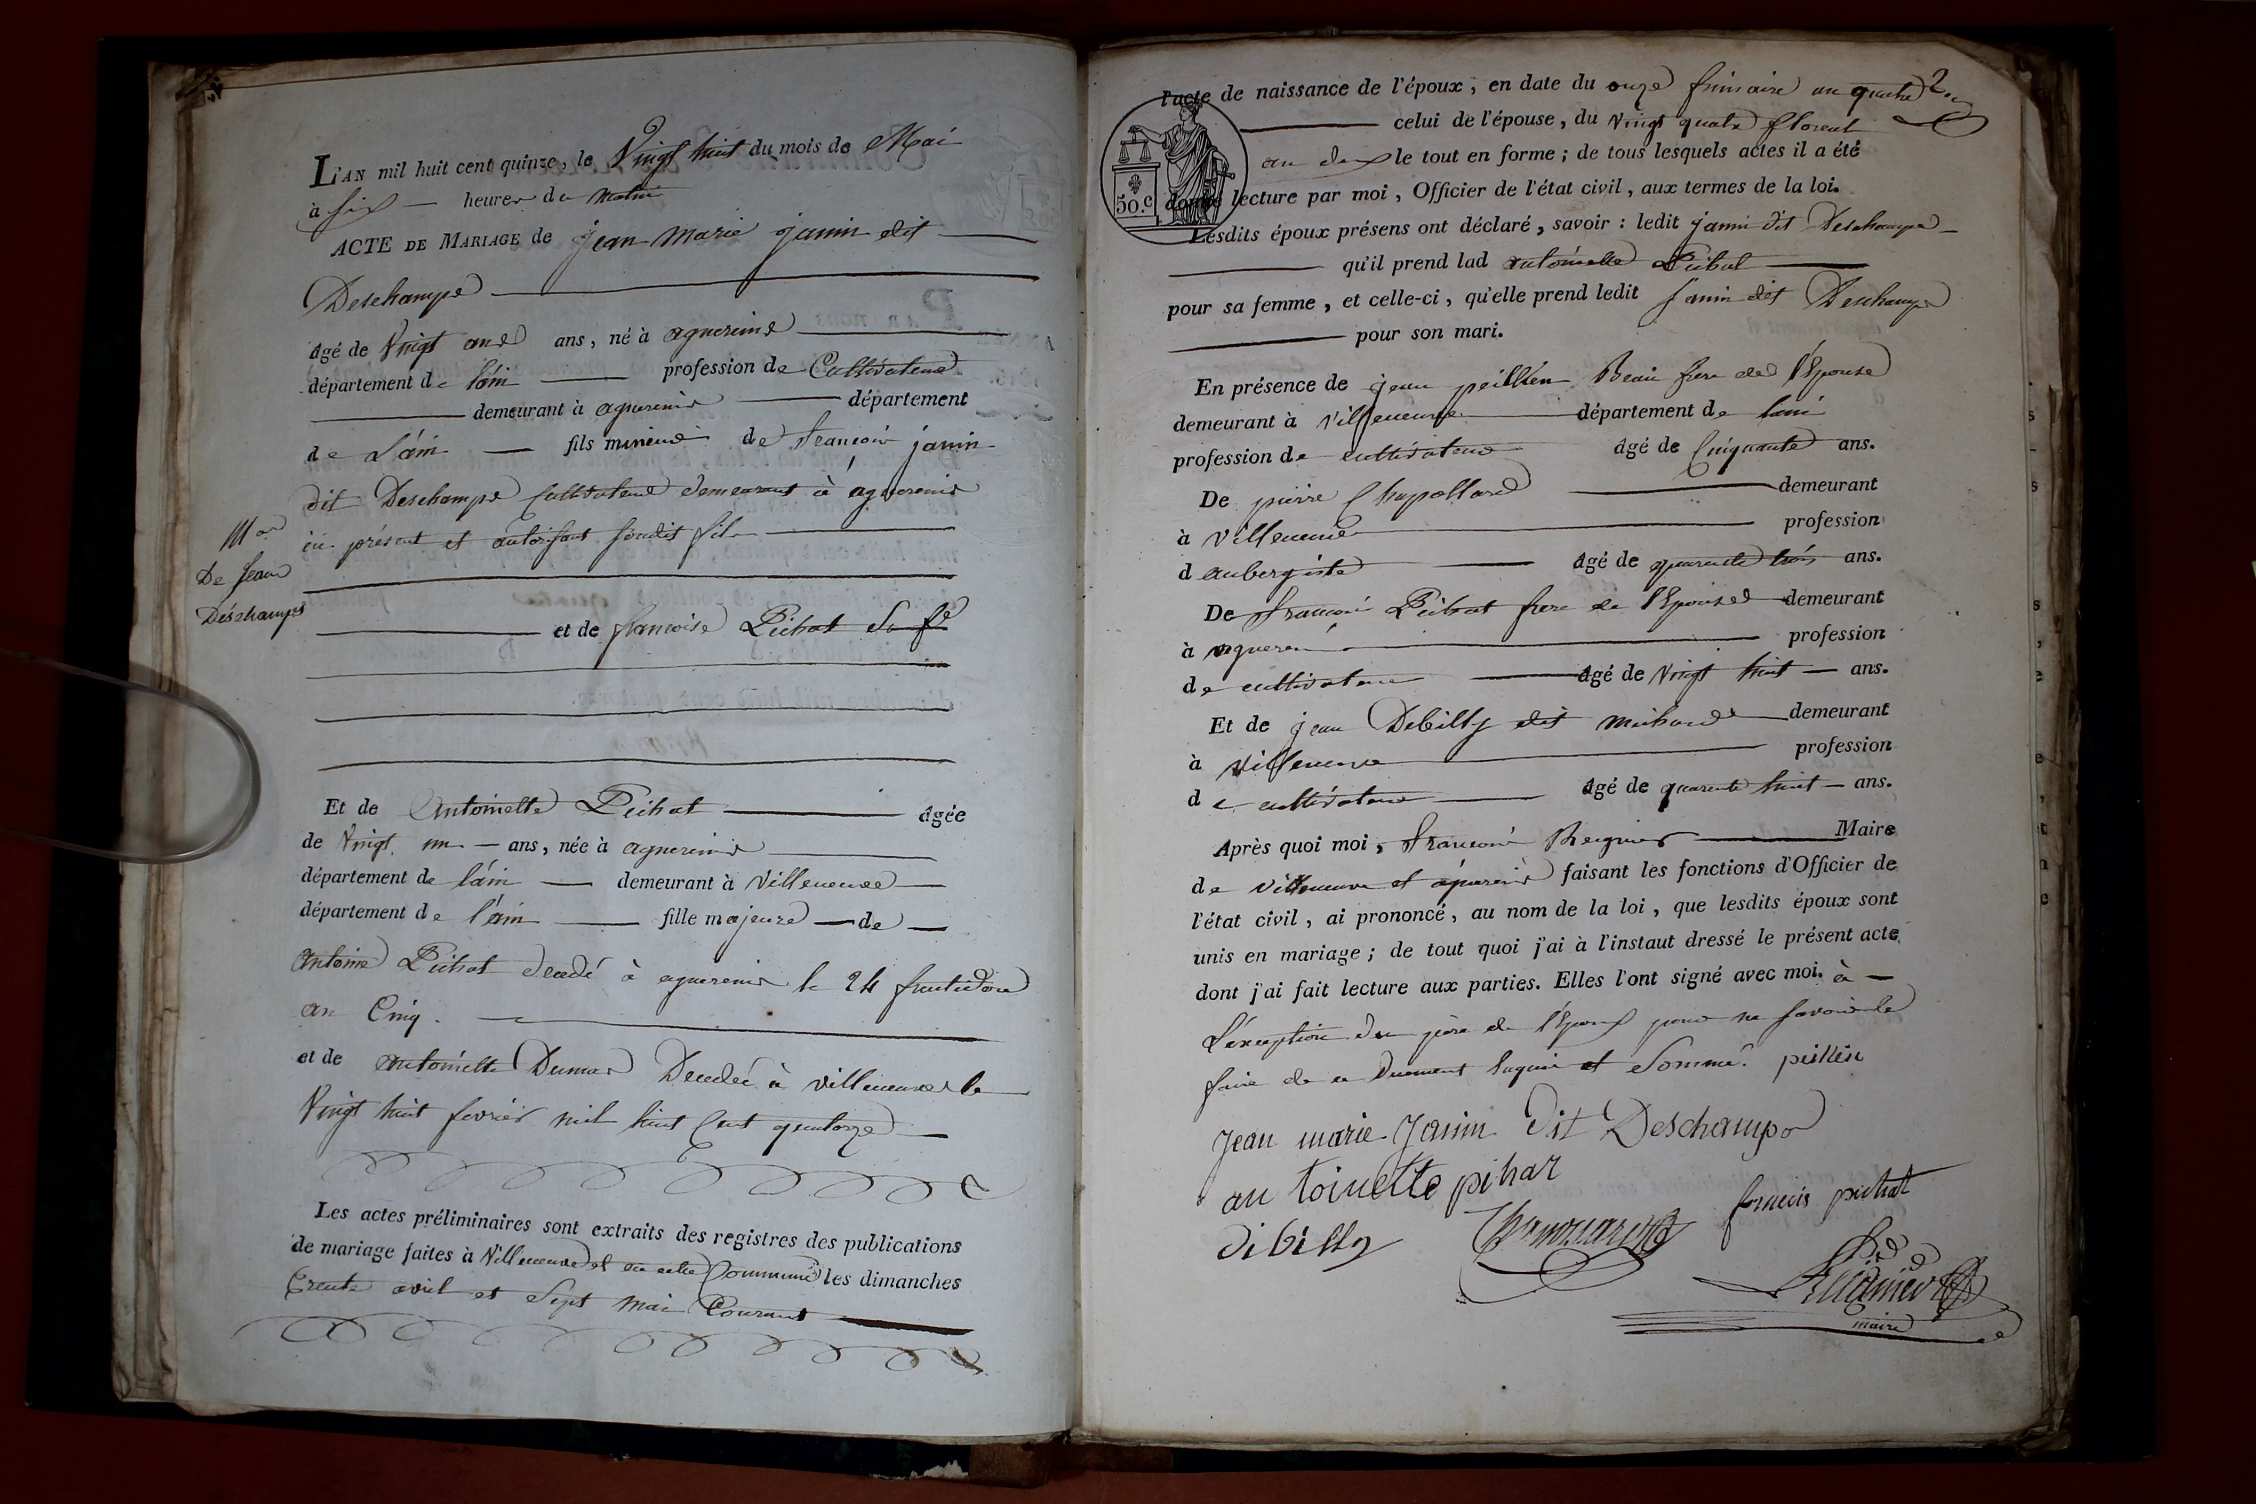 L'AN mil huit cent quinze, le Vingt huit du mois de Mai
à six heures du matin
ACTE DE MARIAGE de jean marie janin dit
Deschamps
âgé de Vingt ans, né à agnereins
département de l'ain profession de Cultivateur
demeurant à agnereins département
de L'ain fils mineur de françois janin
dit Deschamps Cultivateur demeurant à agnereins
ici présent et autorisant sondit fils
Mge
De Jean
Deschamps
et de françoise Pichat Sa fe
Et de Antoinette Pichat âgée
de Vingt un ans, née à agnereins
département de l'ain demeurant à Villeneuve
département de l'ain fille majeure de
Antoine Pichat décédé à agnereins le 24 fructidor
an Cinq
et de antoinette Dumas Décédée à villeneuve le
Vingt huit fevrier mil huit Cent quatorze
Les actes préliminaires sont extraits des registres des publications
de mariage faites à Villeneuve et en cette Commune les dimanches
trente avril et Sept Mai Courant
2.
l'acte de naissance de l'époux, en date du onze frimaire an quatre
celui de l'épouse, du vingt quatre floreal
an deux le tout en forme ; de tous lesquels actes il a été
50.c
donné lecture par moi, Officier de l'état civil, aux termes de la loi.
Lesdits époux présens ont déclaré, savoir : ledit janin dit Deschamps
qu'il prend lad antoinette Pichat
pour sa femme, et celle-ci, qu'elle prend ledit janin dit Deschamps
pour son mari.
En présence de jean peillien Beau frere de l'Epouse
demeurant à Villeneuve département de l'ain
profession de cultivateur âgé de Cinquante ans.
De pierre Chapollard demeurant
à Villeneuve profession
d aubergiste âgé de quarente trois ans.
De françois Pichat frere de l'Epouse demeurant
à agnereins profession
de cultivateur âgé de Vingt huit ans.
Et de jean Debilly dit michaud demeurant
à Villeneuve profession
de cultivateur âgé de quarente huit ans.
Après quoi moi, françois Maire
de villeneuve et agnereins faisant les fonctions d'Officier de
l'état civil, ai prononcé, au nom de la loi, que lesdits époux sont
unis en mariage ; de tout quoi j'ai à l'instaut dressé le présent acte
dont j'ai fait lecture aux parties. Elles l'ont signé avec moi. à
L'exception du père de l'Epoux pour ne savoir le
faire de ce Duement Requis et Sommé. peillien
Jean marie Janin Dit Deschamps
an toinette pihat
francois pichat
di billy
maire